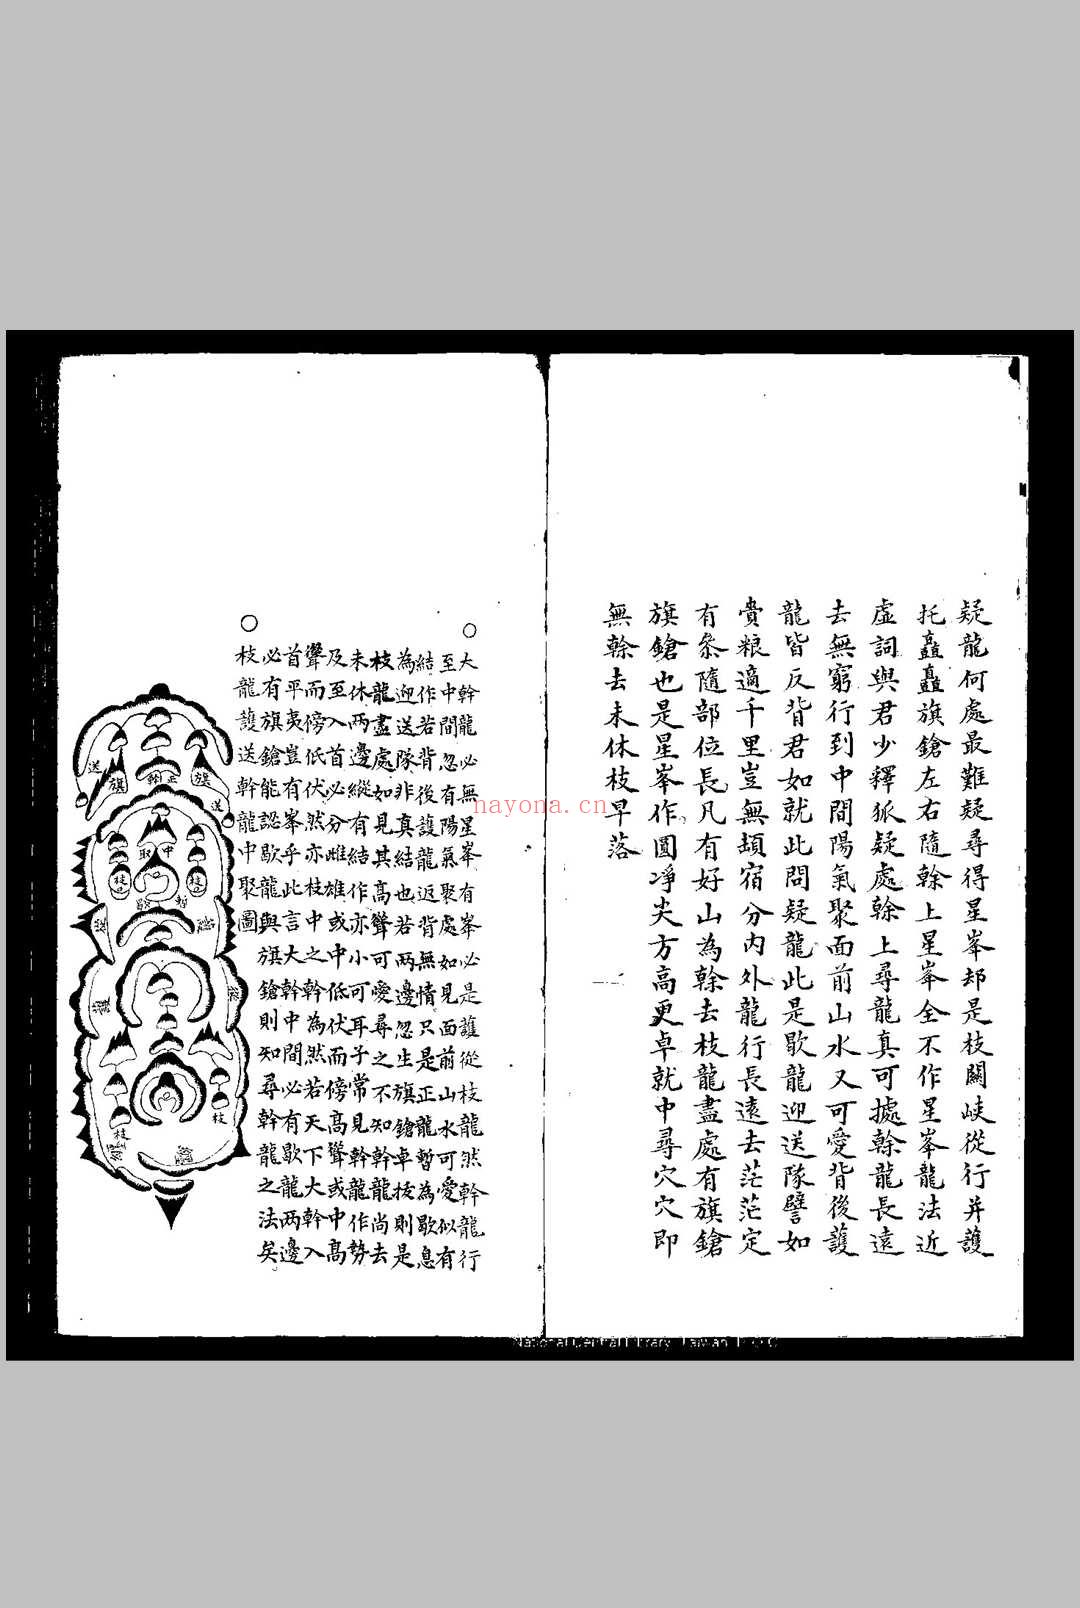 疑龍何處最難疑尋得星峯却是枝關峽從行并護
托矗矗旗鎗左右隨榦上星峯全不作星峯龍法近
虛詞與君少釋狐疑處榦上尋龍真可據榦龍長遠
去無窮行到中間陽氣聚面前山水又可愛背後護
龍皆反背君如就此問疑龍此是歇龍迎送隊譬如
貴粮適千里豈無頓宿分內外龍行長遠去茫茫定
有叅隨部位長凡有好山為榦去枝龍盡處有旗鎗
旗鎗也是星峯作圓凈尖方高更卓就中尋穴穴即
無榦去未休枝早落
○大幹龍必無星峯有峯必是護從枝龍然幹龍行
至中間忽有陽氣聚處如見面前山水可愛似有
結作若背後護龍返背無情只是正龍暫為歇息
為迎送隊非真結也若兩邊忽生旗鎗卓拔則是
枝龍盡處如見其高聳可愛尋之不知幹龍尚去
未休兩邊縱有結作亦小可耳子常見幹龍作勢
及至入首必分雌雄或中低伏而傍高聳或中高
聳而傍低伏然亦枝中之幹為然若天下大幹入
首平夷豈有峯乎此言大幹中間必有歇龍兩邊
必有旗鎗能認歇龍與旗鎗則知尋幹龍之法矣
○枝龍護送幹龍中聚圖
送
旗
幹正
旗
送
取中
枝
枝
護
枝
枝
nayona.cn
National Central Library, Taiwan